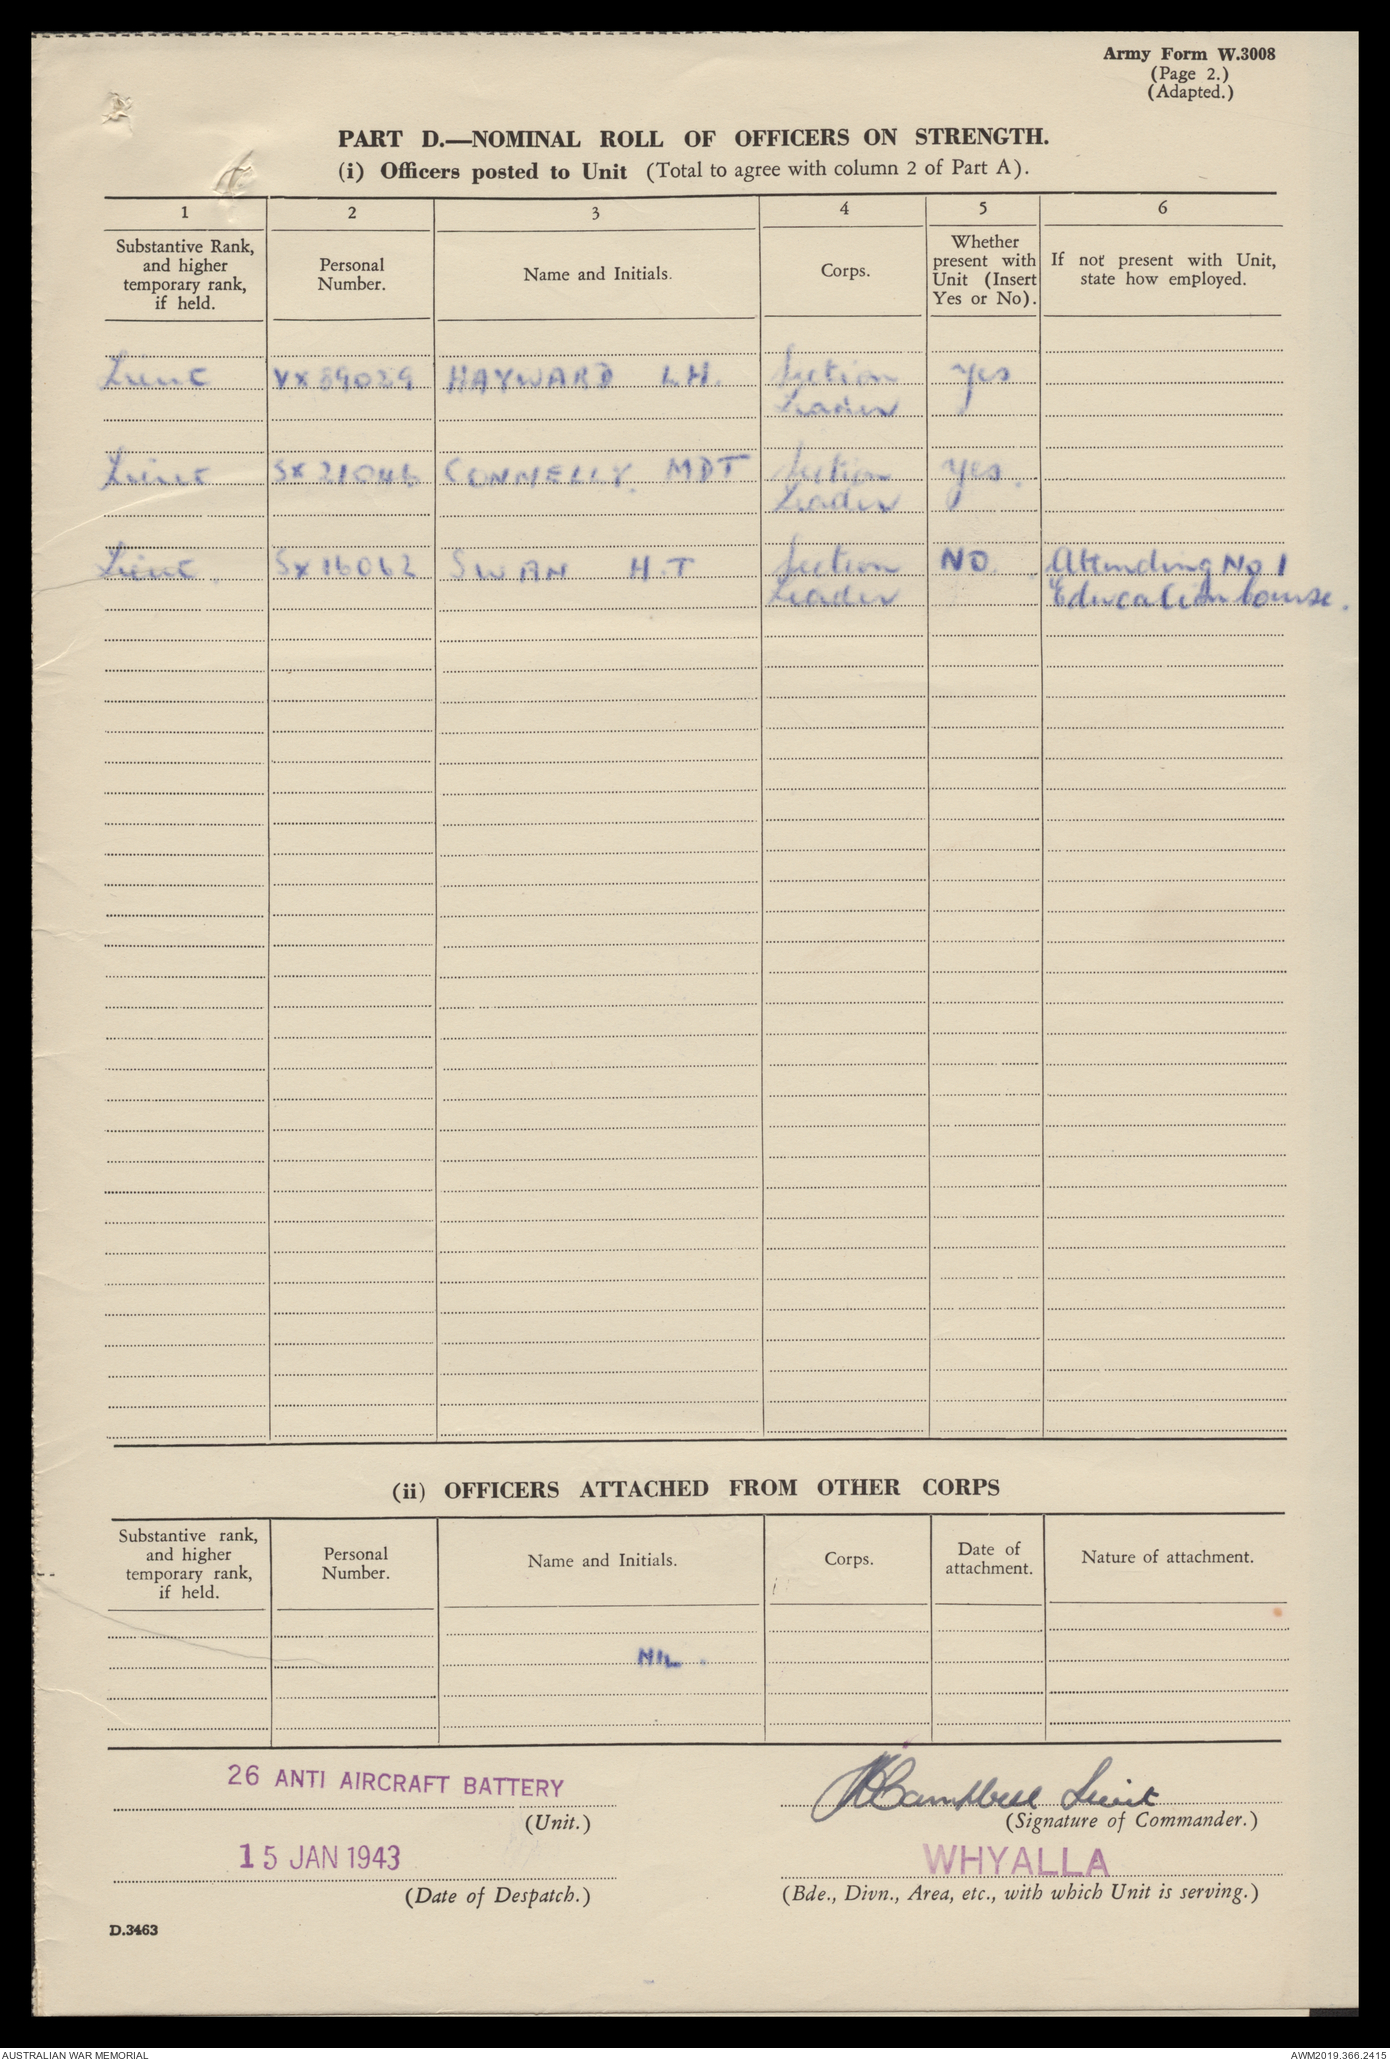 Army Form W.3008
(Page 2.)
(Adapted.)
PART D.—NOMINAL ROLL OF OFFICERS ON STRENGTH.
(i) Officers posted to Unit (Total to agree with column 2 of Part A).
1 2 3 4 5 6
Substantive Rank, and higher temporary rank, if held.
Personal Number.
Name and Initials.
Corps.
Whether present with Unit (Insert Yes or No).
If not present with Unit, state how employed.
Lieut VX89029 HAYWARD L.H. Section Yes
Leader
Lieut SX21046 CONNELLY. MDT Section Yes.
Leader
Lieut. SX16062 SWAN H.T Section NO. Attending No 1
Leader Education Course.
(ii) OFFICERS ATTACHED FROM OTHER CORPS
Substantive rank, and higher temporary rank, if held.
Personal Number.
Name and Initials.
Corps.
Date of attachment.
Nature of attachment.
NIL.
26 ANTI AIRCRAFT BATTERY
Campbell Lieut
(Unit.)
(Signature of Commander.)
15 JAN 1943
WHYALLA
(Date of Despatch.)
(Bde., Divn., Area, etc., with which Unit is serving.)
D.3463
AUSTRALIAN WAR MEMORIAL
AWM2019.366.2415